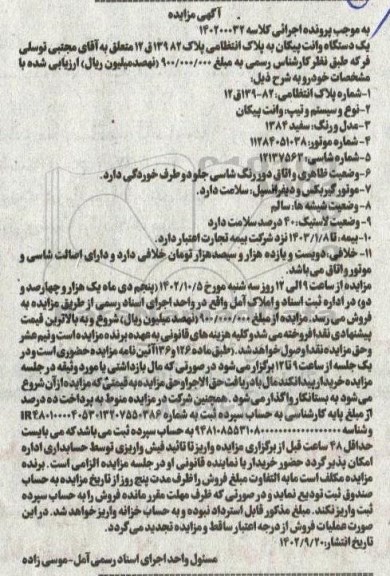 آگهی مزایده
به موجب پرونده اجرائی کلاسه ۱۴۰۲۰۰۰۳۲
یک دستگاه وانت پیکان به پلاک انتظامی پلاک ۸۲ ۱۳۹ق۱۲ متعلق به آقای مجتبی توسلی
فر که طبق نظر کارشناس رسمی به مبلغ ۹۰۰/۰۰۰/۰۰۰ (نهصدمیلیون ریال) ارزیابی شده با
مشخصات خودرو به شرح ذیل:
۱-شماره پلاک انتظامی: ۸۲-۱۳۹ق۱۲
۲-نوع و سیستم و تیپ: وانت پیکان
۳-مدل و رنگ: سفید ۱۳۸۴
۴-شماره موتور: ۱۱۲۸۴۰۵۱۰۳۸
۵-شماره شاسی: ۱۲۱۳۷۵۶۲
۶-وضعیت ظاهری و اتاق دور رنگ شاسی جلو دو طرف خوردگی دارد.
۷-موتور گیربکس و دیفرانسیل: سلامت دارد.
۸-وضعیت شیشه ها: سالم
۹-وضعیت لاستیک: ۴۰ درصد سلامت دارد
۱۰-بیمه: تا ۱۴۰۳/۱/۸ نزد شرکت بیمه تجارت اعتبار دارد.
۱۱-خلافی: دویست و یازده هزار و سیصدهزار تومان خلافی دارد و دارای اصالت شاسی و
موتور و اتاق می باشد.
مزایده از ساعت ۹ الی ۱۲ روز سه شنبه مورخ ۱۴۰۲/۱۰/۵ (پنجم دی ماه یک هزار و چهارصد و
دو) در اداره ثبت اسناد و املاک آمل واقع در واحد اجرای اسناد رسمی از طریق مزایده به
فروش می رسد. مزایده از مبلغ ۹۰۰/۰۰۰/۰۰۰ (نهصد میلیون ریال) شروع و به بالاترین قیمت
پیشنهادی نقدا فروخته می شد و کلیه هزینه های قانونی به عهده برنده مزایده است و نیم عشر
و حق مزایده نقدا وصول خواهد شد. (طبق ماده ۱۲۶ و ۱۳۶ آئین نامه مزایده حضوری است و در
یک جلسه از ساعت ۹ تا ۱۲ برگزار می شود در صورتی که مال بازداشتی یا مورد وثیقه در جلسه
مزایده خریدار پیدا نکند مال با دریافت حق الاجرا و حق مزایده به قیمتی که مزایده از آن شروع
می شود به بستانکار واگذار می شود. همچنین شرکت در مزایده منوط به پرداخت ده درصد
از مبلغ پایه کارشناسی به حساب سپرده ثبت به شماره
و شناسه به حساب سپرده ثبت می باشد که می بایست
حداقل ۴۸ ساعت قبل از برگزاری مزایده واریز تا تائید فیش واریزی توسط حسابداری اداره
امکان پذیر گردد حضور خریدار یا نماینده قانونی او در جلسه مزایده الزامی است. برنده
مزایده مکلف است مابه التفاوت مبلغ فروش را ظرف مدت پنج روز از تاریخ مزایده به حساب
صندوق ثبت تودیع نماید و در صورتی که ظرف مهلت مقرر مانده فروش را به حساب سپرده
ثبت واریز نکند. مبلغ مذکور قابل استرداد نبوده و به حساب خزانه واریز خواهد شد. در این
صورت عملیات فروش از درجه اعتبار ساقط و مزایده تجدید می گردد.
تاریخ انتشار: ۱۴۰۲/۹/۲۰
مسئول واحد اجرای اسناد رسمی آمل-موسی زاده